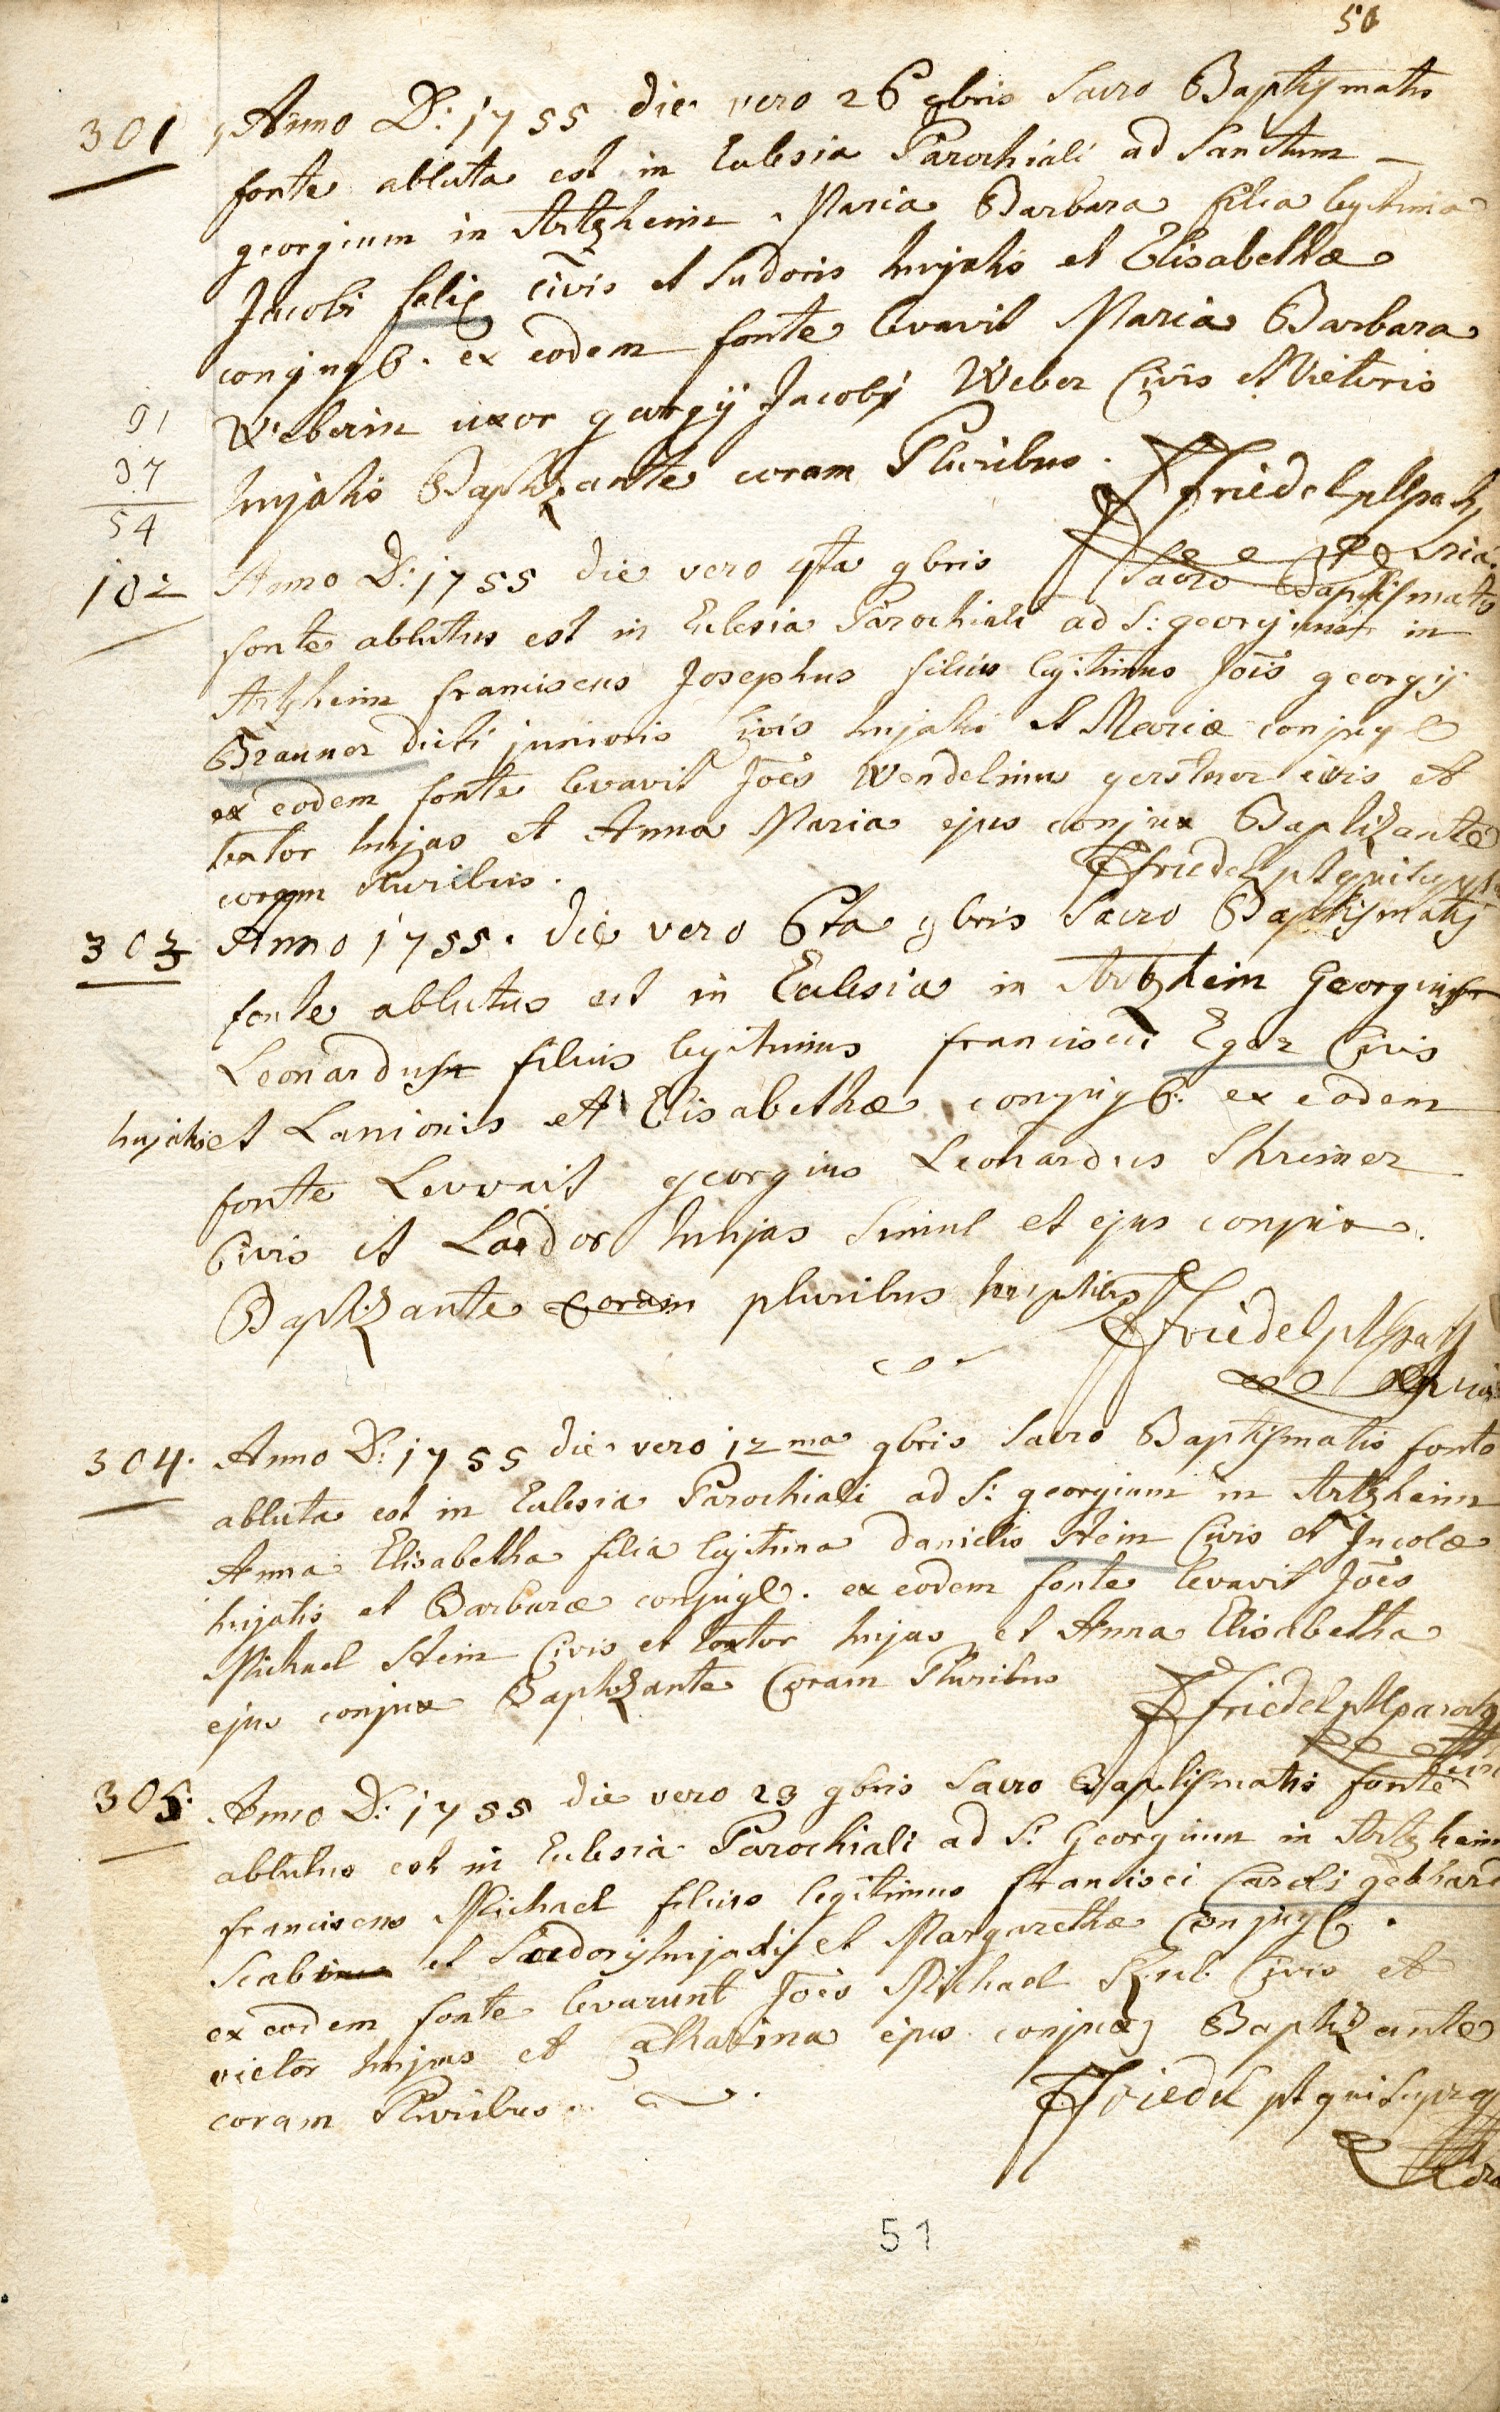 50
301 Anno D: 1755 die vero 26 9bris Sacro Baptismatis
fonte abluta est in Eclesia Parochiali ad Sanctum
georgium in Artzheim Maria Barbara filia legitima
Jacobi felix civis et Sudoris hujatis et Elisabethæ
conjugb. ex eodem fonte levavit Maria Barbara
Weberin uxor georgij Jacobj Weber Civis et Vietoris
hujatis Baptizante coram Pluribus. Friedel
91
37
54
102 Anno D: 1755 die vero 4ta 9bris Sacro Baptismatis
fonte ablutus est in Eclesia Parochiali ad S: georgium in
Artzheim franciscus Josephus filius legitimus Jois georgij
Brauner dicti junioris civis hujatis et Mariæ conjug
ex eodem fonte levavit Joes Wendelinus gerstner civis et
textor hujas et Anna Maria ejus conjux Baptizante
coram Pluribus. Friedel
303 Anno 1755. die vero 6ta 9bris Sacro Baptismatis
fonte ablutus est in Eclesia in Artzheim Georgius
Leonardus filius legitimus francisci Eger Civis
hujatis et Lanionis et Elisabethæ conjugb. ex eodem
fonte Levavit georgius Leonardus Shreiner
Civis et hujas Simul et ejus conjux.
Baptizante coram pluribus Friedel
304. Anno D: 1755 die vero 12ma 9bris Sacro Baptismatis fonte
abluta est in Eclesia Parochiali ad S: georgium in Artzheim
Anna Elisabetha filia legitima danielis Stein Civis et Incolæ
hujatis et Barbaræ conjugb. ex eodem fonte levavit Joes
Michael Stein Civis et textor hujas et Anna Elisabetha
ejus conjux Baptizante Coram Pluribus Friedel
305. Anno D: 1755 die vero 23 9bris Sacro Baptismatis fonte
ablutus est in Eclesia Parochiali ad S: Georgium in Artzheim
franciscus Michael filius legitimus francisci Caroli gebhard
et hujatis et Margarethæ Conjugb.
ex eodem fonte levarunt Joes Michael Civis et
vietor hujas et Catharina ejus conjux Baptizante
coram Pluribus. Friedel
51